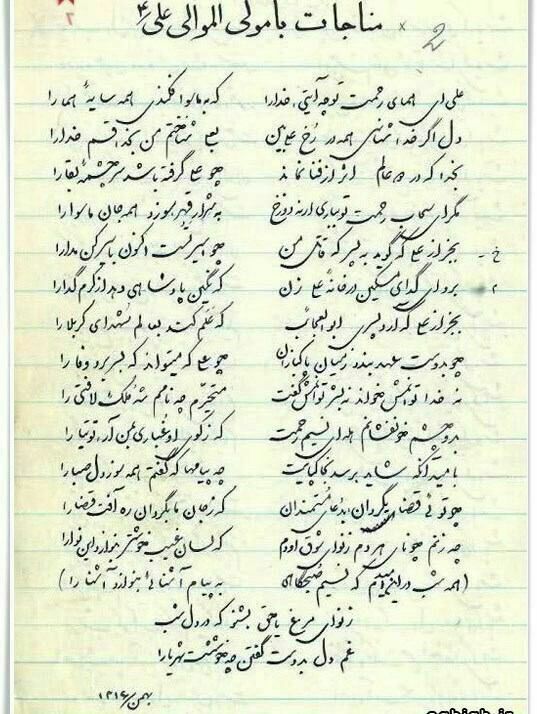 مناجات با مولی الموالی علی ع
۲
علی ای همای رحمت تو چه آیتی خدارا که به ماسوا فکندی همه سایهٔ هما را
دل اگر خداشناسی همه در رُخ علی بین بعلی شناختم من بخدا قسم خدا را
بخدا که در دو عالم اثر از فنا نماند چو علی گرفته باشد سر چشمهٔ بقا را
مگر ای سحاب رحمت تو بباری ار نه دوزخ به شرار قهر سوزد همه جان ماسوا را
بجز از علی که گوید به پسر که قاتل من چو اسیر تست اکنون باسیر کن مدارا
برو ای گدای مسکین در خانهٔ علی زن که نگین پادشاهی دهد از کرم گدا را
بجز از علی که آرد پسری ابوالعجائب که عَلَم کند بعالم شهدای کربلا را
چو بدوست عهد بندد ز میان پاکبازان چو علی که میتواند که بسر برد وفا را
نه خدا توانمش خواند نه بشر توانمش گفت متحیّرم چه نامم شه مُلک لافتی را
بدو چشم خونفشانم هله ای نسیم رحمت که ز کوی او غباری بمن آر توتیا را
بامید آنکه شاید برسد بخاک پایت چه پیامها که گفتم همه سوز دل صبا را
چو توئی قضای گردان بدعای مستمندان که ز جان ما بگردان ره آفت قضا را
چه زنم چونای هر دم ز نوای شوق او دم که لسان غیب خوشتر بنوازد این نوا را
(همه شب در این امیدم که نسیم صبحگاهی به پیام آشنائی بنوازد آشنا را)
ز نوای مرغ یا حق بشنو که در دل شب
غم دل بدوست گفتن چه خوشست شهریارا